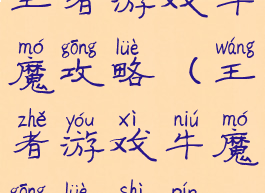 王者游戏牛
mó gōng lüè wáng
魔攻略（王
zhě yóu xì niú mó
者游戏牛魔
gōng lüè shì pín